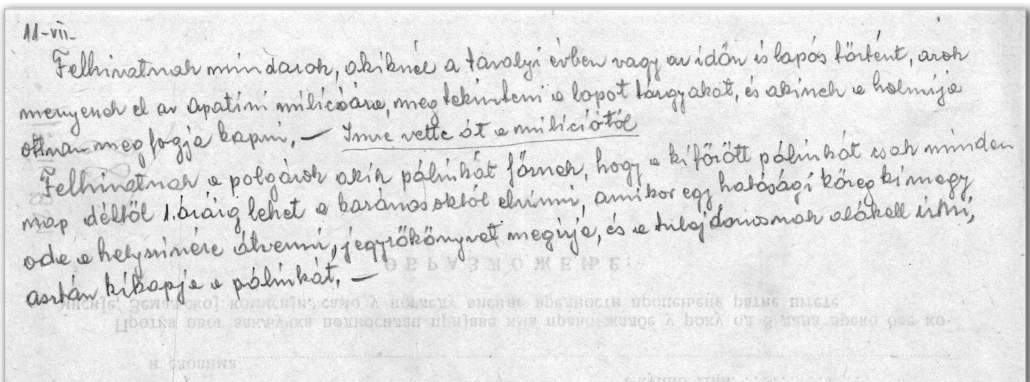 11-VII-
Felhivatnak mindazok, akiknél a tavalyi évben vagy az idén is lopás történt, azok
menyenek el az apatini milicióára, megtekinteni a lopot tárgyakat, és akinek a holmija
ottvan meg fogja kapni, — Imre vette át a miliciótól
Felhivatnak a polgárok akik pálinkát főznek, hogy a kifőzött pálinkát csak minden
nap déltől 1. óráig lehet a kazánosoktól elvinni, amikor egy hatósági közeg kimegy
oda a helyszinére átvenni, jegyzőkönyvet megirja, és a tulajdonosnak alákell irni,
aztán kikapja a pálinkát, —
ОБРАЗЛОЖЕЊЕ:
Против овог закључка подносилац пријаве има право жалбе у року од 8 дана преко ове ко-